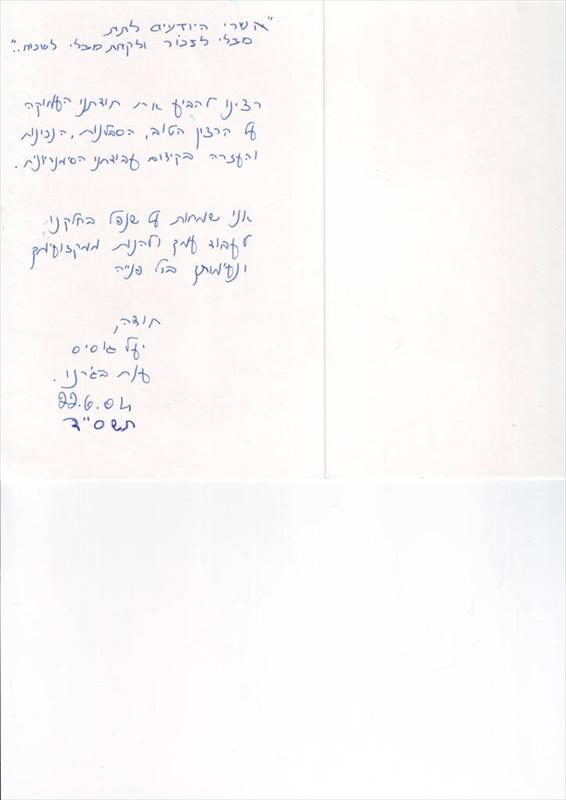 "אשרי היודעים לתת
מבלי לזכור ולקחת מבלי לשכוח.."
רצינו להביע את תודתנו העמוקה
על הרצון הטוב, הסבלנות, הנכונות
והעזרה בקידום עבודתנו הסמנריונית.
אנו שמחות על שנפל בחלקנו
לעבוד עמך ולהנות ממקצועיותך
ונעימותך בכל פנייה
תודה,
יעל
ענת
22.6.04
תשס"ד